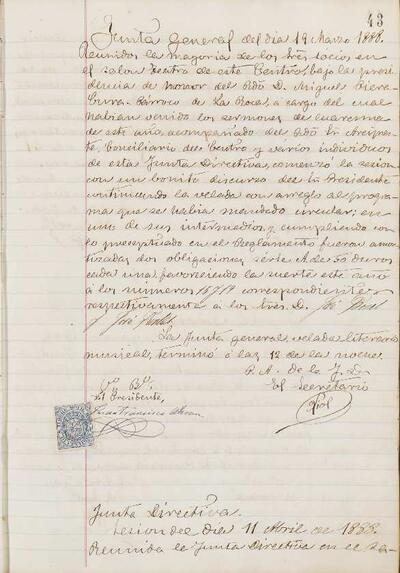 43
Junta general del dia 19 Marzo 1888.
Reunidos la mayoria de los Sres socios en
el salon teatro de este Centro, bajo la presi-
dencia de honor del Rdo D. Miguel
Cura-Párroco de La Roca, á cargo del cual
habian venido los sermones de cuaresma
de este año, acompañado del Rdo Sr Arcipres-
te, Conciliario del Centro y varios individuos
de esta Junta Directiva, comenzó la sesion
con un bonito discurso del Sr Presidente
continuando la velada con arreglo al progra-
ma que se habia mandado circular; en
uno de sus intermedios y cumpliendo con
lo preceptuado en el Reglamento fueron amor-
tizadas dos obligaciones série A de 50 duros
cada una favoreciendo la suerte este año
á los números 16 y 18 correspondientes
respectivamente á los Sres. D. José
y José
La Junta general, velada literario
musical, terminó á las 12 de la noche.
P. A. de la J. D.
El Secretario
Vº Bº
El Presidente
Juan Francisco
Piol
Junta Directiva.
Sesion del dia 11 Abril de 1888.
Reunida la Junta Directiva en el sa-